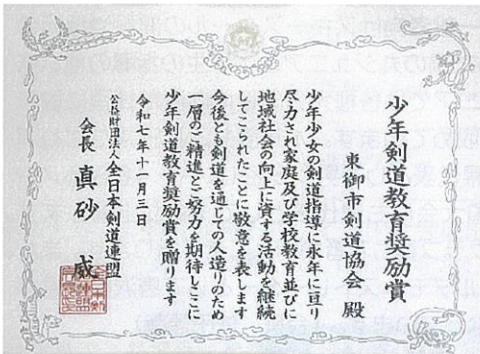 少年剣道教育奨励賞
東御市剣道協会 殿
少年少女の剣道指導に永年に亘り
尽力され家庭及び学校教育並びに
地域社会の向上に資する活動を継続
してこられたことに敬意を表します
今後とも剣道を通じての人造りのため
一層のご精進とご努力を期待しここに
少年剣道教育奨励賞を贈ります
令和七年十一月三日
公益財団法人 全日本剣道連盟
会長 真砂 威